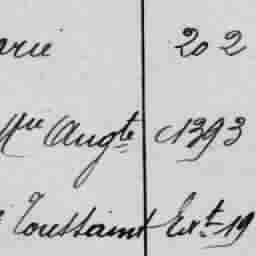 arie 202
Mie Augte 1393
Toussaint Ext 19